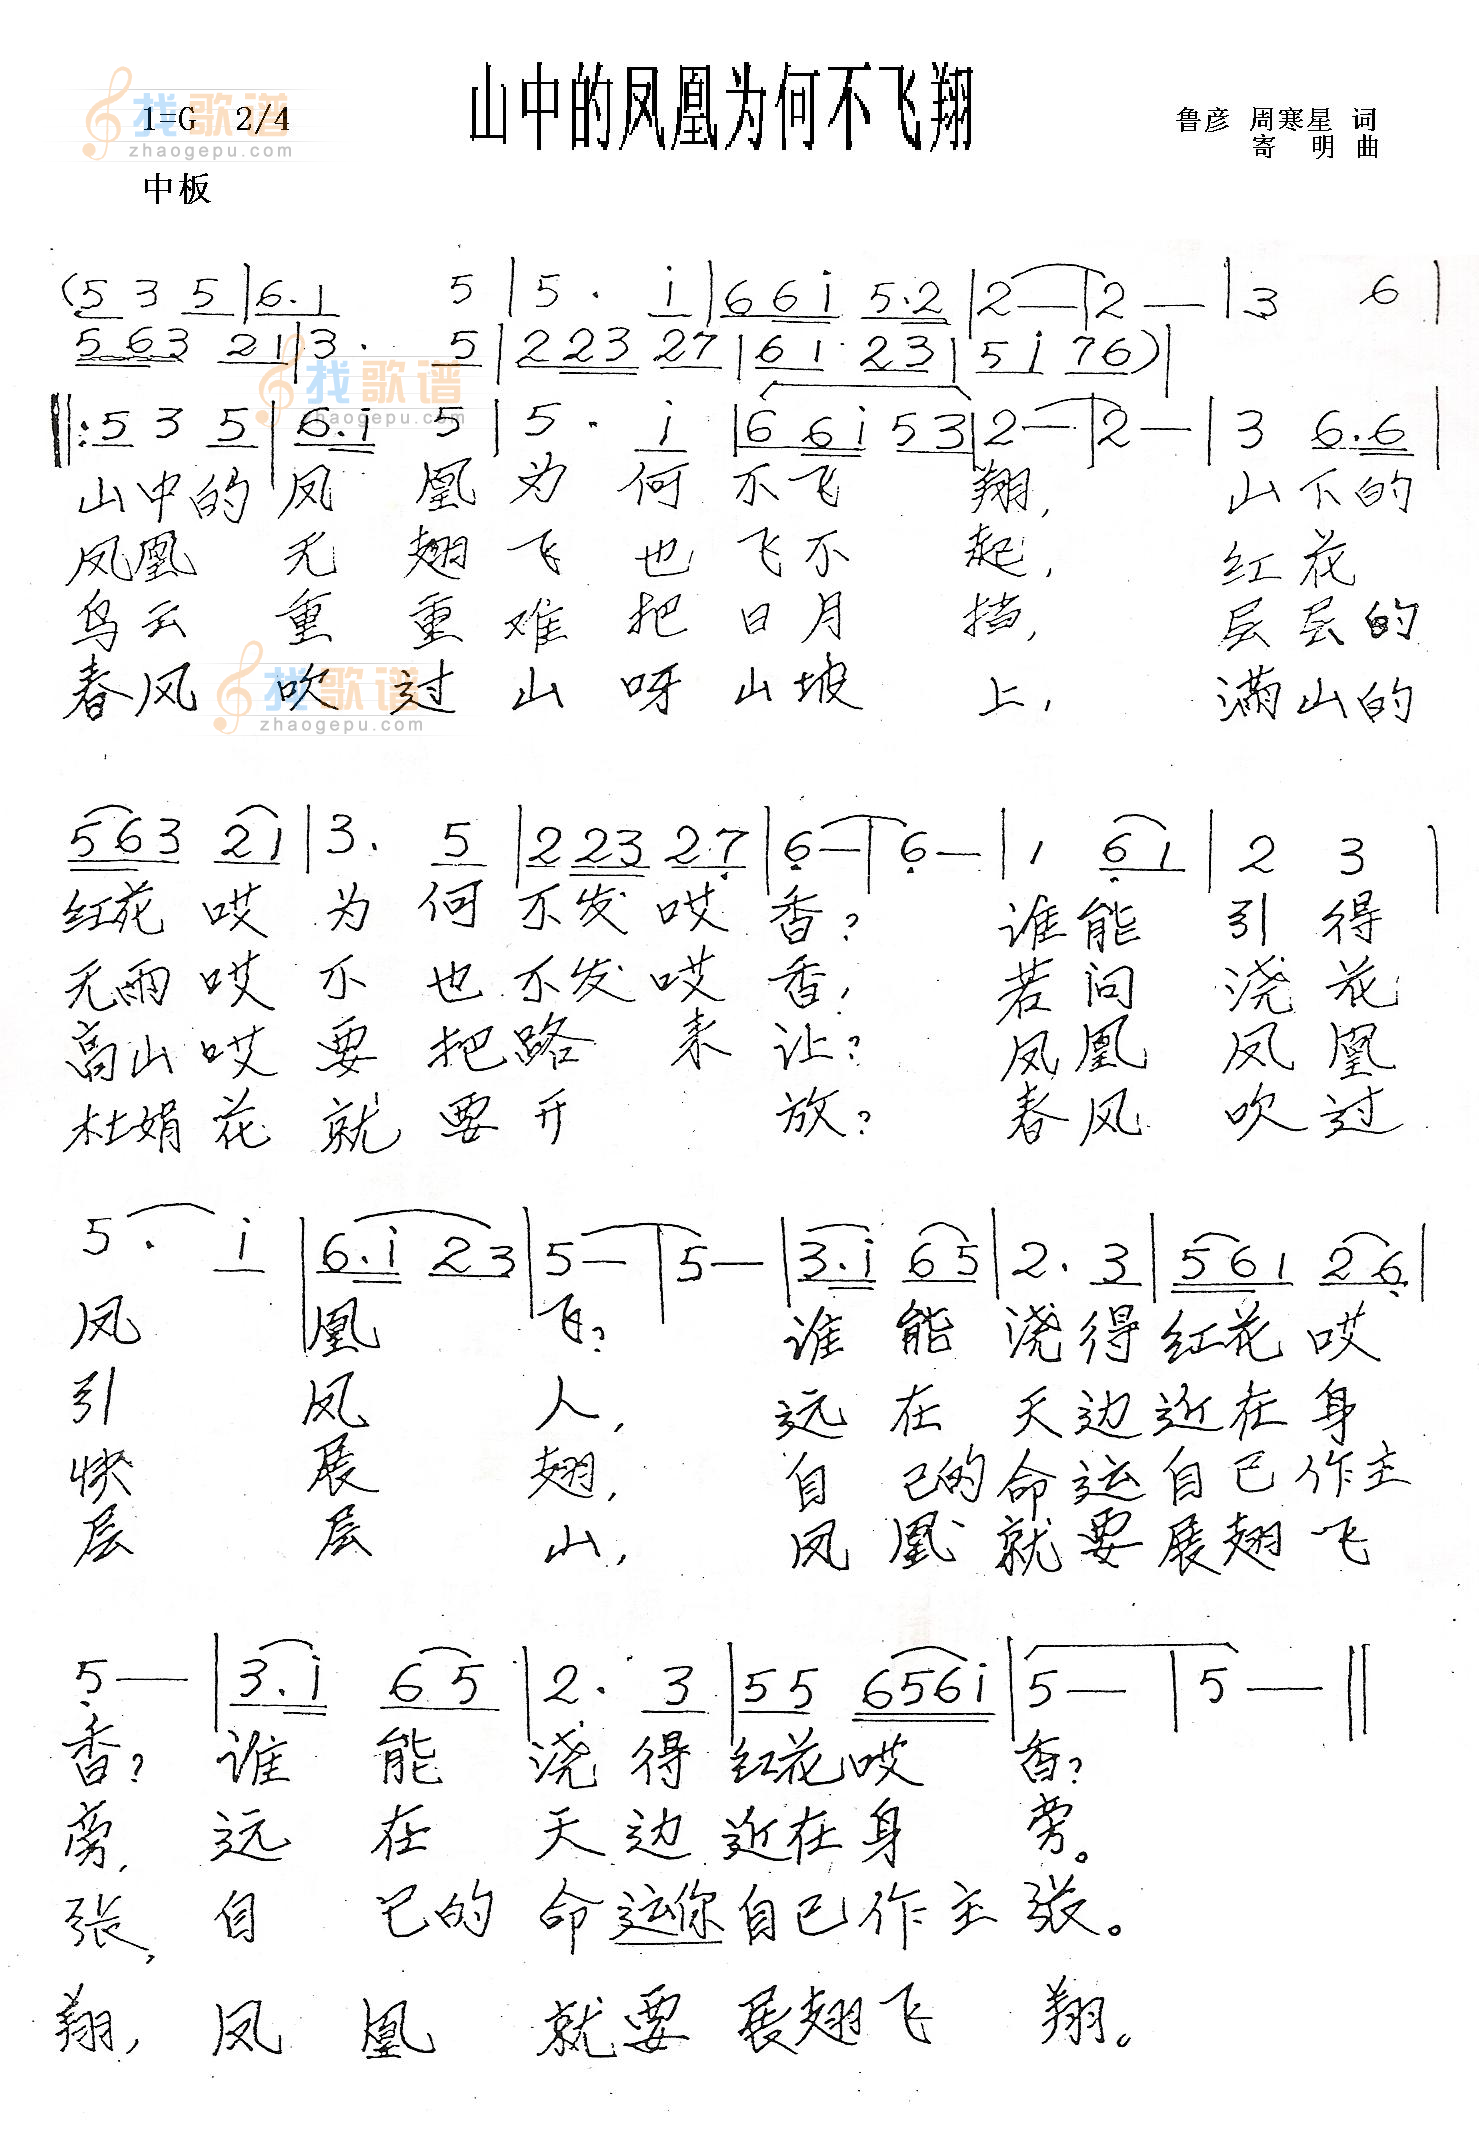 山中的凤凰为何不飞翔
找歌谱
zhaogepu.com
1=G 2/4
鲁彦 周寒星 词
寄 明 曲
中板
(5 3 5|6.1 5|5. i|6 6 i 5.2|2—|2—|3 6|
5 6 3 2 1|3. 5|2 2 3 2 7|6 1 2 3|5 i 7 6)|
找歌谱
zhaogepu.com
‖:5 3 5|6.i 5|5. i|6 6 i 5 3|2—|2—|3 6.6|
山中的凤 凰为 何 不飞 翔, 山下的
凤凰 无 翅飞 也 飞不 起, 红花
乌云 重 重难 把 日月 挡, 层层的
春风 吹 过山 呀 山坡 上, 满山的
找歌谱
zhaogepu.com
5 6 3 2 1|3. 5|2 2 3 2 7|6—|6—|1 6 1|2 3|
红花 哎 为 何 不发 哎 香? 谁能 引 得
无雨 哎 不 也 不发 哎 香, 若问 浇 花
高山 哎 要 把路 来 让? 凤凰 凤 凰
杜娟 花 就 要开 放? 春风 吹 过
5. i|6.i 2 3|5—|5—|3.i 6 5|2. 3|5 6 1 2 6|
凤 凰 飞? 谁 能 浇 得 红花 哎
引 凤 人, 远 在 天 边 近在 身
快 展 翅, 自 己的 命 运 自己 作主
层 层 山, 凤 凰 就 要 展翅 飞
5—|3.i 6 5|2. 3|5 5 6 5 6 i|5—|5—‖
香? 谁 能 浇 得 红花 哎 香?
旁, 远 在 天 边 近在 身 旁。
张, 自 己的 命 运你 自己 作主 张。
翔, 凤 凰 就 要 展翅 飞 翔。